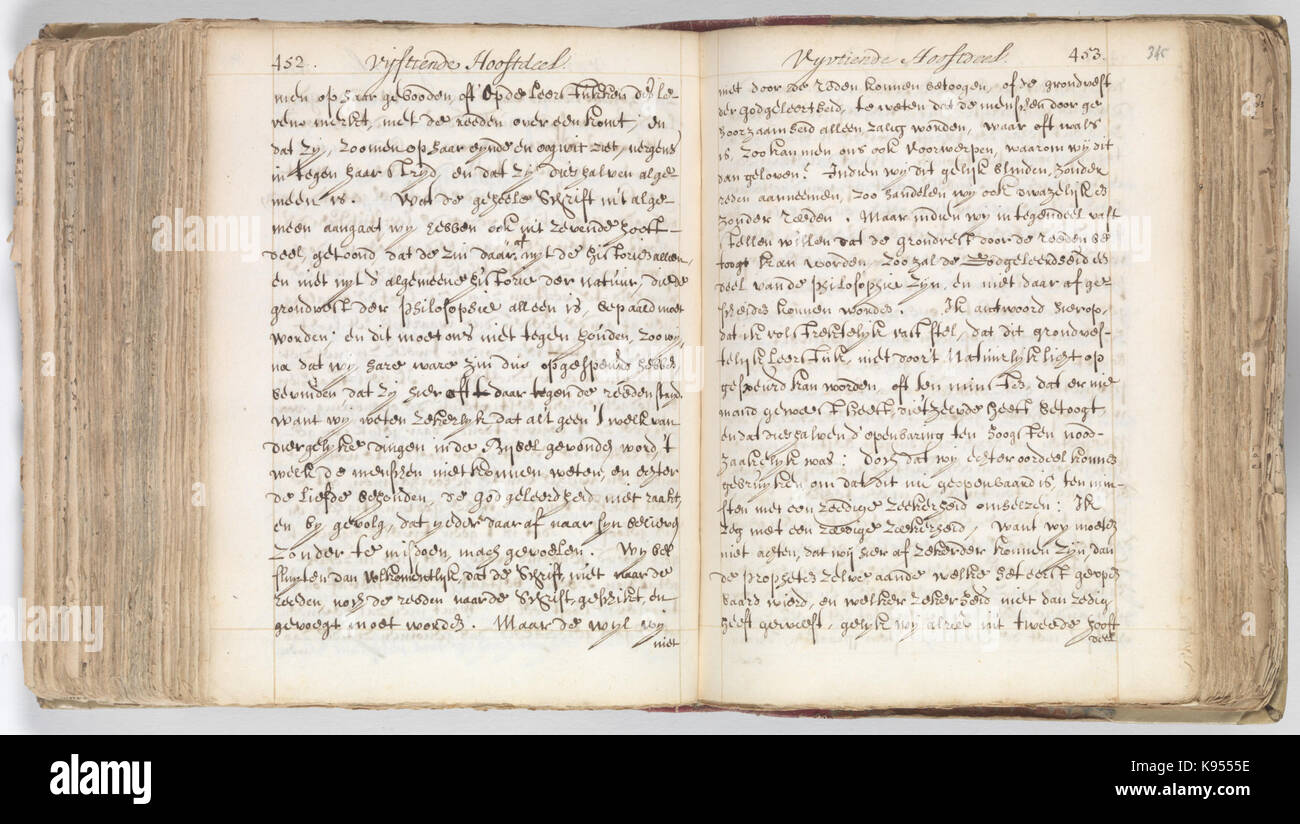 452. Vijftiende Hooftdeel.
men op haar gebooden, oft op de leerstukken des le-
vens merkt, met de reeden over een komt; en
dat zy, zoo men op haar eynde en oogwit ziet, nergens
in tegen haar stryd, en dat zy dieshalven alge-
meen is. Wat de geheele Schrift in't alge-
meen aangaat wy hebben ook in't zevende hooft-
deel, getoond dat de zin daar af uyt de historie alleen,
en niet uyt d'algemeene historie der natuur, die de
grondvest der philosophie alleen is, bepaald moet
worden; en dit moet ons niet tegen houden, zoo wy,
na dat wy hare ware zin dus opgespeurd hebben,
bevinden dat zy hier oft daar tegen de reeden stryd.
Want wy weten zekerlyk dat al't geen 't welk van
diergelyke dingen in de Bybel gevonden word, 't
welk de menschen niet konnen weten, en echter
de liefde behouden, de God geleerdheid niet raakt,
en by gevolg, dat yeder daar af naar syn believen
zonder te misdoen, mach gevoelen. Wy be-
sluyten dan volkomentlijk, dat de Schrift niet naar de
reeden, noch de reeden naar de Schrift, geschikt, en
gevoegt moet worden. Maar de wyl wy
niet
Vyvtiende Hoofdeel. 453. 345
niet door de reden konnen betoogen, oft de grondvest
der Godgeleertheid, te weten dat de menschen door ge-
hoorzaamheid alleen zalig worden, waar oft vals
is, zoo kan men ons ook voorwerpen, waarom wij dit
dan geloven? Indien wy dit gelijk blinden, zonder
reden aanneemen, zoo handelen wy ook dwazelijk en
zonder reeden. Maar indien wy in tegendeel vast
stellen willen dat de grondvest door de reeden be-
toogt kan worden, zoo zal de Godgeleerdheid een
deel van de philosophie zyn, en niet daar af ge-
scheiden konnen worden. Ik antwoord hier op,
dat ik volstrektelyk vast stel, dat dit grondves-
telijk leerstuk, niet door't Natuurlyk licht op
gespeurd kan worden, oft ten minsten, dat er nie-
mand geweest heeft, die't zelvde heeft betoogt,
en dat dieshalven d'openbaring ten hoogsten nood-
zaakelyk was: doch dat wy echter oordeel konnen
gebruyken om dat dit nu geopenbaard is ten min-
sten met een zeedige zeekerheid omhelzen: Ik
zeg met een zeedige zeekerheid, Want wy moeten
niet achten, dat wij hier af zekerder konnen zyn, dan
de propheten zelve aan de welke het eerst geopen-
baard wierd, en welker zekerheid niet dan zedig
heeft geweest, gelyk wy alreê in't tweede hooft
deel
alamy
a
Image ID: K9555E
www.alamy.com
alamy stock photo